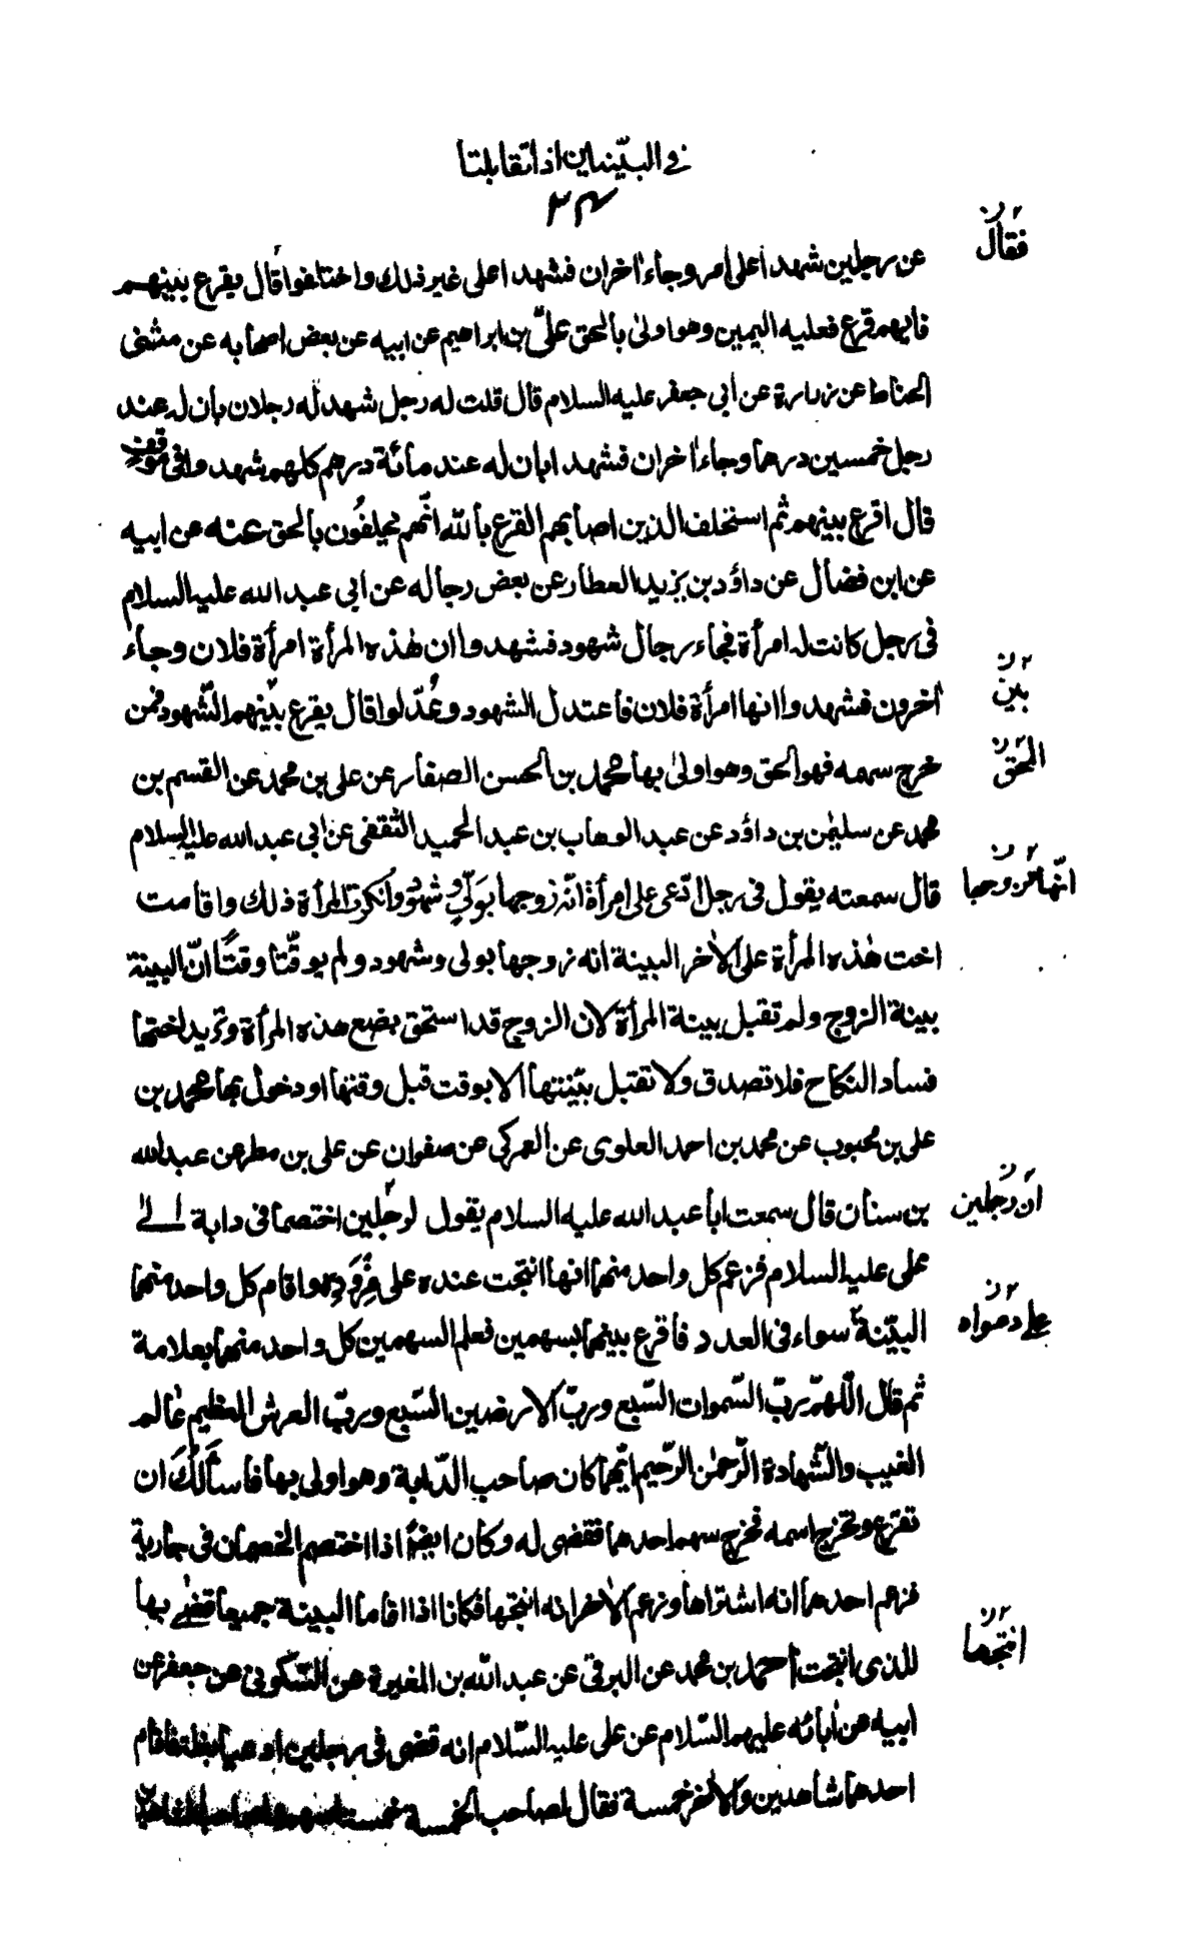 في البيّنتين اذا تقابلتا
٣٤
عن رجلين شهدا على امر وجاء اخران فشهدا على غير ذلك واختلفوا قال يقرع بينهم
فقال
فايهم قرع فعليه اليمين وهو اولى بالحق علىّ بن ابراهيم عن ابيه عن بعض اصحابه عن مثنى
الحناط عن زرارة عن ابى جعفر عليه السلام قال قلت له رجل شهد له رجلان بان له عند
رجل خمسين درهما وجاء اخران فشهدا بان له عنده مائة درهم كلهم شهدوا فى موقف
قال اقرع بينهم ثم استحلف الذين اصابهم القرع بالله انّهم يحلفُون بالحق عنه عن ابيه
عن ابن فضال عن داؤد بن يزيد العطار عن بعض رجاله عن ابى عبد الله عليه السلام
فى رجل كانت له امرأة فجاء رجال شهود فشهدوا ان هٰذه المرأة امرأة فلان وجاء
اخرون فشهدوا انها امرأة فلان فاعتدل الشهود وعُدّلوا قال يقرع بيّنهم الشّهود فمن
بين
خرج سهمه فهو الحق وهو اولىٰ بها محمد بن الحسن الصفار عن على بن محمد عن القسم بن
المحق
محمد عن سليمٰن بن داؤد عن عبد الوهاب بن عبد الحميد الثقفى عن ابى عبد الله عليه السلام
قال سمعته يقول فى رجل ادّعى على امرأة انّه زوجها بوَلّىٍ وشهُودٍ وانكرت المرأة ذلك واقامت
انّها تزوجها
اخت هٰذه المرأة على الاٰخر البينة انه زوجها بولى وشهود ولم يوقّتا وقتًا انّ البينة
بينة الزوج ولم تقبل بينة المرأة لان الزوج قد استحق بضع هذه المرأة وتريد اختها
فساد النكاح فلا تصدق ولا تقبل بيّنتها الا بوقت قبل وقتها او دخول بها محمد بن
على بن محبوب عن محمد بن احمد العلوى عن العمركى عن صفوان عن على بن مطر عن عبد الله
بن سنان قال سمعت ابا عبد الله عليه السلام يقول لرجلين اختصما فى دابة الى
ان رجلين
على عليه السلام فزعم كل واحد منهما انها انتجت عنده على مِذْوَدِه واقام كل واحد منهما
البيّنة سواء فى العدد فاقرع بينهما بسهمين فعلم السهمين كل واحد منهما بعلامة
على دعواه
ثم قال اللّهمّ ربّ السّموات السّبع وربّ الارضين السّبع وربّ العرش العظيم عٰالم
الغيب والشّهادة الرّحمٰن الرّحيم ايّهما كان صاحب الدّابة وهو اولى بها فاسأَلُكَ ان
تقرع وتخرج اسمه فخرج سهم احدهما فقضى له وكان ايضًا اذا اختصم الخصمان فى جارية
فزعم احدهما انه اشتراها وزعم الاٰخر انه انتجها فكانا اذا اقاما البينة جميعا قضى بها
للذى انتجت احمد بن محمد عن البرقى عن عبد الله بن المغيرة عن السّكونى عن جعفر عن
انتجها
ابيه عن اٰبائه عليهم السّلام عن على عليه السّلام انه قضى فى رجلين ادعيا بغلة فاقام
احدهما شاهدين والاٰخر خمسة فقال لصاحب الخمسة خمسة اسهم